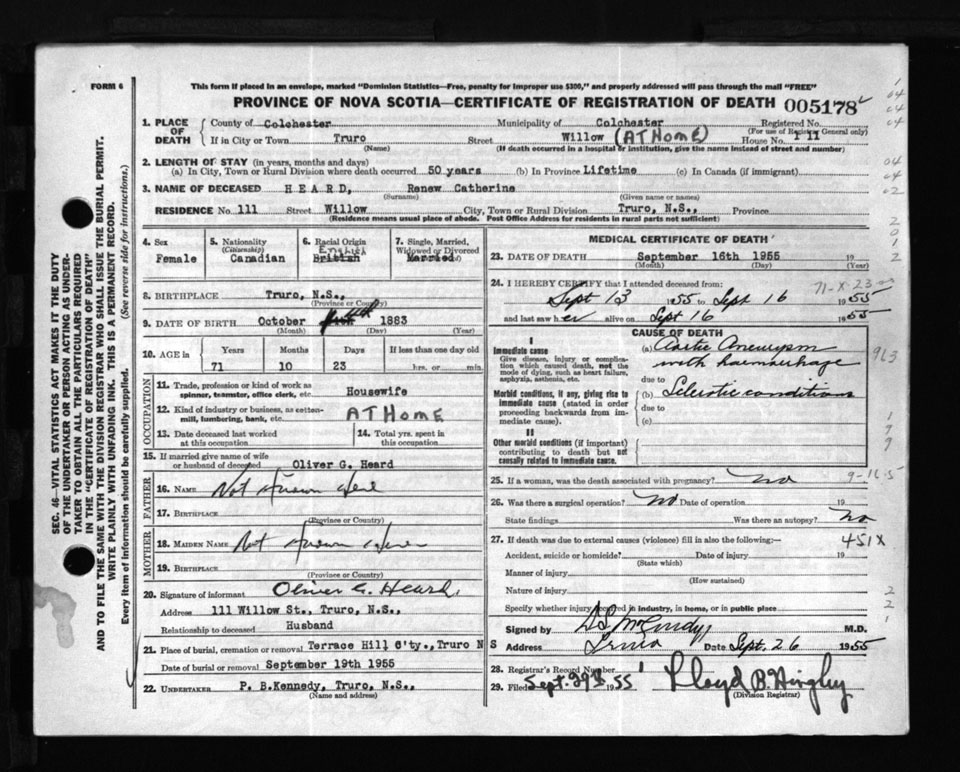 FORM 6
This form if placed in an envelope, marked "Dominion Statistics—Free, penalty for improper use $300," and properly addressed will pass through the mail "FREE"
PROVINCE OF NOVA SCOTIA—CERTIFICATE OF REGISTRATION OF DEATH 005178
1. PLACE OF DEATH County of Colchester Municipality of Colchester Registered No.
(For use of Registrar General only)
If in City or Town Truro Street Willow (AT HOME) House No. 111
(Name) (If death occurred in a hospital or institution, give the name instead of street and number)
2. LENGTH OF STAY (in years, months and days)
(a) In City, Town or Rural Division where death occurred 50 years (b) In Province Lifetime (c) In Canada (if immigrant)
3. NAME OF DECEASED HEARD, Renew Catherine
(Surname) (Given name or names)
RESIDENCE No 111 Street Willow City, Town or Rural Division Truro, N.S., Province
(Residence means usual place of abode. Post Office Address for residents in rural parts not sufficient)
4. Sex Female
5. Nationality (Citizenship) Canadian
6. Racial Origin English British
7. Single, Married, Widowed or Divorced Married
8. BIRTHPLACE Truro, N.S.,
(Province or Country)
9. DATE OF BIRTH October 1883
(Month) (Day) (Year)
10. AGE in Years Months Days If less than one day old
71 10 23 hrs. or min.
OCCUPATION
11. Trade, profession or kind of work as spinner, teamster, office clerk, etc. Housewife
12. Kind of industry or business, as cotton-mill, lumbering, bank, etc. AT HOME
13. Date deceased last worked at this occupation
14. Total yrs. spent in this occupation
15. If married give name of wife or husband of deceased Oliver G. Heard
FATHER
16. NAME Not Known Here
17. BIRTHPLACE
(Province or Country)
MOTHER
18. MAIDEN NAME Not Known Here
19. BIRTHPLACE
(Province or Country)
20. Signature of informant Oliver G. Heard.
Address 111 Willow St., Truro, N.S.,
Relationship to deceased Husband
21. Place of burial, cremation or removal Terrace Hill C'ty., Truro N S
Date of burial or removal September 19th 1955
22. UNDERTAKER P. B.Kennedy, Truro, N.S.,
(Name and address)
MEDICAL CERTIFICATE OF DEATH
23. DATE OF DEATH September 16th 1955 19
(Month) (Day) (Year)
24. I HEREBY CERTIFY that I attended deceased from:
Sept 13 1955 to Sept 16 1955
and last saw her alive on Sept 16 1955
CAUSE OF DEATH
I
Immediate cause
Give disease, injury or complication which caused death, not the mode of dying, such as heart failure, asphyxia, asthenia, etc.
(a) Aortic Aneurysm
with haemorrhage
due to
Morbid conditions, if any, giving rise to immediate cause (stated in order proceeding backwards from immediate cause).
(b) Sclerotic conditions
due to
(c)
II
Other morbid conditions (if important) contributing to death but not causally related to immediate cause.
25. If a woman, was the death associated with pregnancy? no
26. Was there a surgical operation? no Date of operation 19
State findings Was there an autopsy? no
27. If death was due to external causes (violence) fill in also the following:—
451X
Accident, suicide or homicide? Date of injury 19
(State which)
Manner of injury
(How sustained)
Nature of injury
Specify whether injury occurred in industry, in home, or in public place
Signed by M.D.
Address Truro Date Sept. 26 1955
28. Registrar's Record Number
29. Filed Sept. 29th 1955 Lloyd B. Hingley
(Division Registrar)
SEC. 46—VITAL STATISTICS ACT MAKES IT THE DUTY
OF THE UNDERTAKER OR PERSON ACTING AS UNDER-
TAKER TO OBTAIN ALL THE PARTICULARS REQUIRED
IN THE "CERTIFICATE OF REGISTRATION OF DEATH"
AND TO FILE THE SAME WITH THE DIVISION REGISTRAR WHO SHALL ISSUE THE BURIAL PERMIT.
WRITE PLAINLY WITH UNFADING INK. THIS IS A PERMANENT RECORD.
Every item of Information should be carefully supplied. (See reverse side for instructions.)